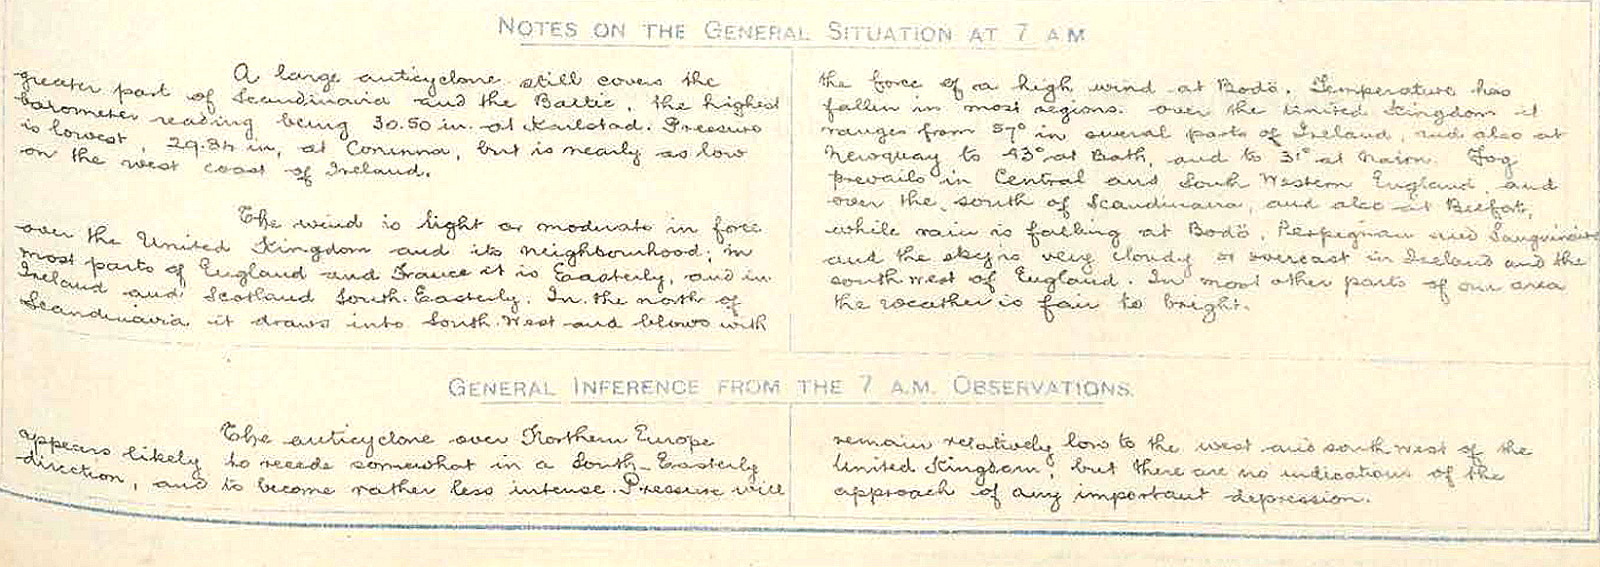 NOTES ON THE GENERAL SITUATION AT 7 A M
A large anticyclone still covers the
greater part of Scandinavia and the Baltic, the highest
barometer reading being 30.50 in. at Karlstad. Pressure
is lowest, 29.84 in, at Corunna, but is nearly as low
on the west coast of Ireland.
The wind is light or moderate in force
over the United Kingdom and its neighbourhood; in
most parts of England and France it is Easterly, and in
Ireland and Scotland South-Easterly. In the north of
Scandinavia it draws into South-West and blows with
the force of a high wind at Bodö. Temperature has
fallen in most regions. Over the United Kingdom it
ranges from 57° in several parts of Ireland, and also at
Newquay to 43° at Bath, and to 31° at Nairn. Fog
prevails in Central and South Western England, and
over the south of Scandinavia, and also at Belfort,
while rain is falling at Bodö, Perpignan and Sanguinaire
and the sky is very cloudy or overcast in Iceland and the
south west of England. In most other parts of our area
the weather is fair to bright.
GENERAL INFERENCE FROM THE 7 A.M. OBSERVATIONS.
The anticyclone over Northern Europe
appears likely to recede somewhat in a South-Easterly
direction, and to become rather less intense. Pressure will
remain relatively low to the west and south west of the
United Kingdom, but there are no indications of the
approach of any important depression.